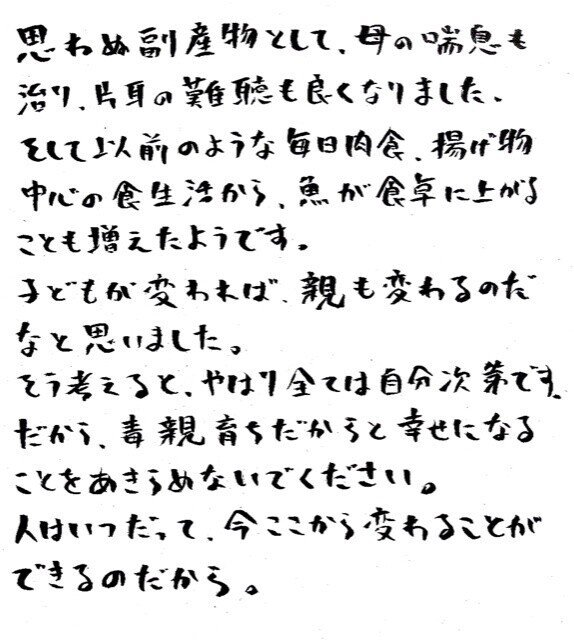 思わぬ副産物として、母の喘息も
治り、片耳の難聴も良くなりました、
そして以前のような毎日肉食、揚げ物
中心の食生活から、魚が食草に上がる
ことも増えたようです。
子どもが変われば、親も変わるのだ
なと思いました。
そう考えると、やはり全ては自分次第です。
だから、毒親育ちだからと幸せになる
ことをあきらめないでください。
人はいつだって、今ここから変わることが
できるのだから。